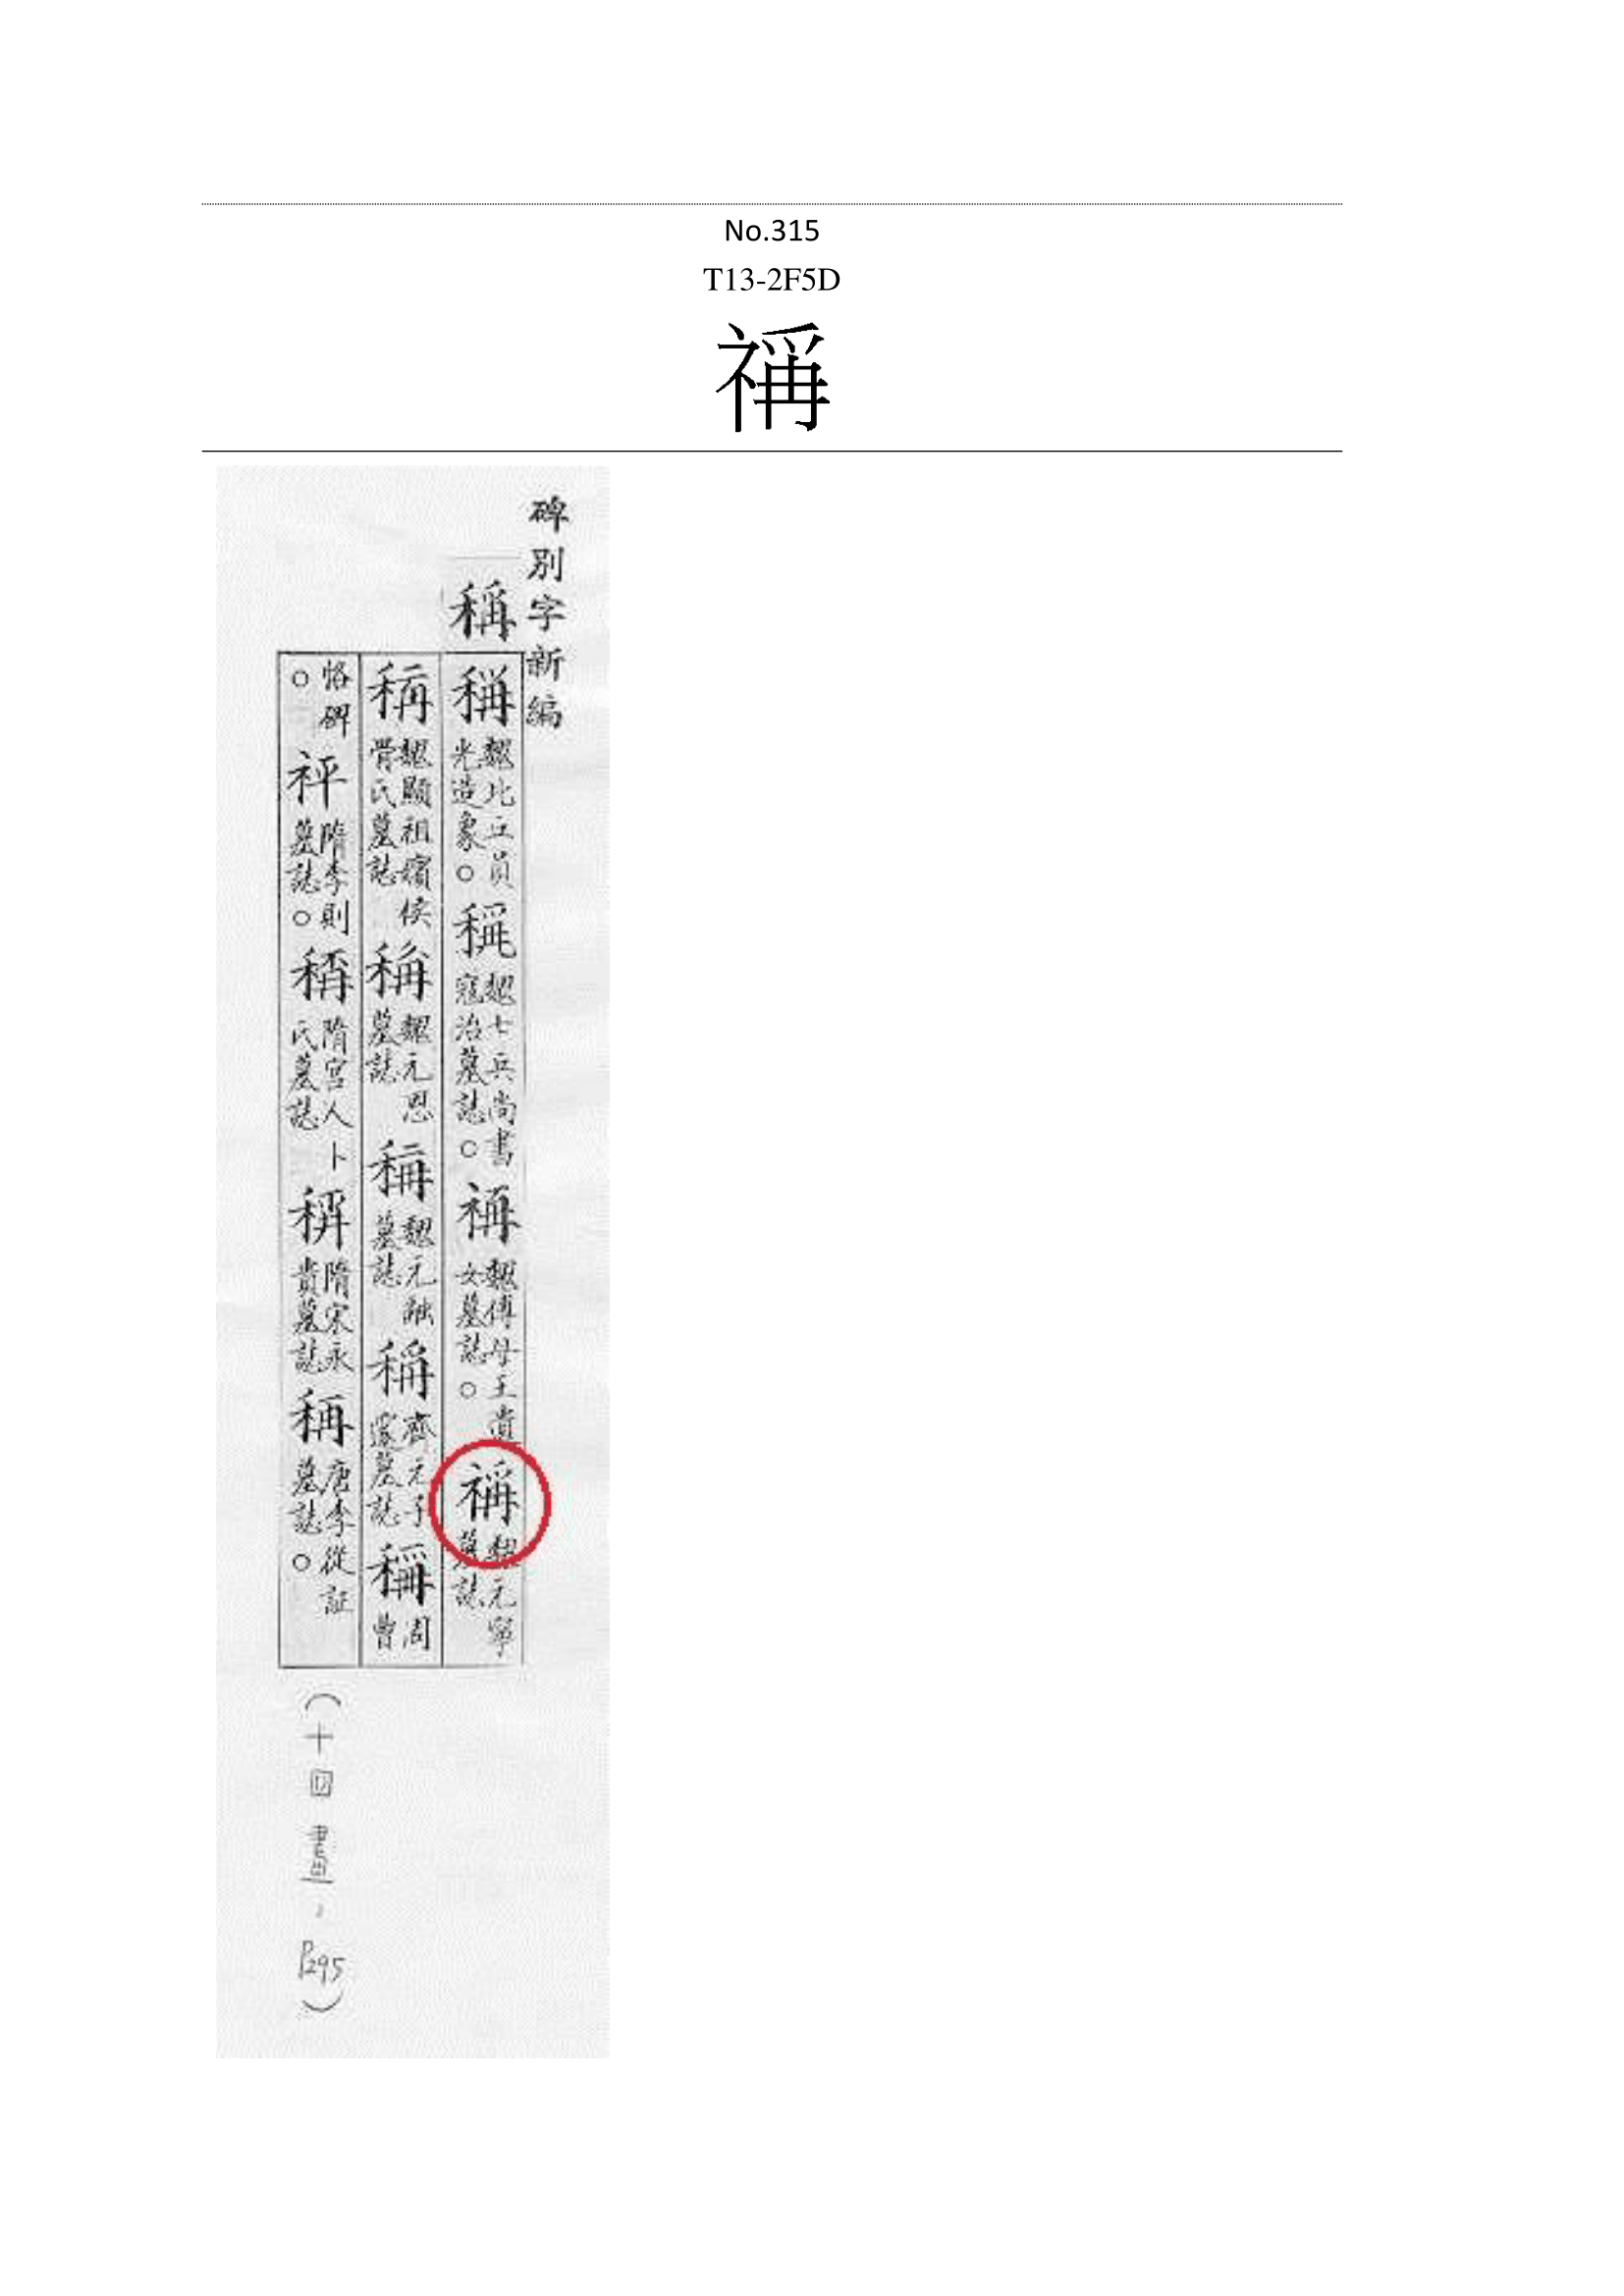 No.315
T13-2F5D
碑別字新編
稱
魏比丘員
光造象○
魏七兵尚書
寇治墓誌○
魏傅母王遺
女墓誌○
魏元寧
墓誌
稱
魏顯祖嬪侯
骨氏墓誌
魏元恩
墓誌
稱
魏元融
墓誌
稱
齊元子
邃墓誌
周
曹
恪碑
○
隋李則
墓誌○
隋宮人卜
氏墓誌
隋宋永
貴墓誌
稱
唐李從証
墓誌○
(十四畫,P295)